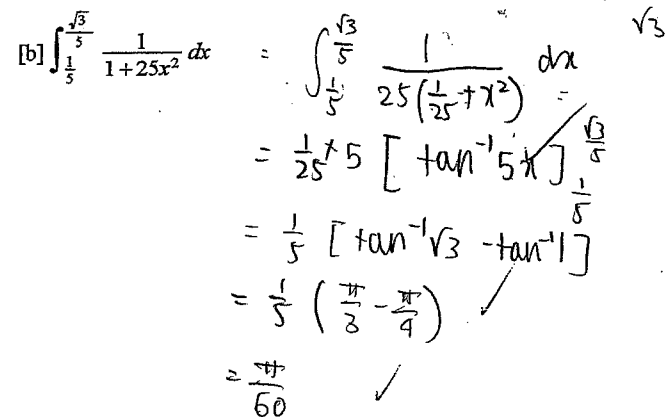 √3
[b] ∫_{1/5}^{√3/5} 1/(1+25x²) dx = ∫_{1/5}^{√3/5} 1/(25(1/25+x²)) dx
= 1/25 × 5 [tan⁻¹5x]_{1/5}^{√3/5}
= 1/5 [tan⁻¹√3 - tan⁻¹1]
= 1/5 (π/3 - π/4)
= π/60